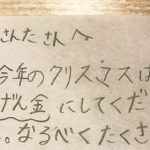 さんたさんへ
今年のクリスマスは
げん金にしてくだ
。なるべくたくさ